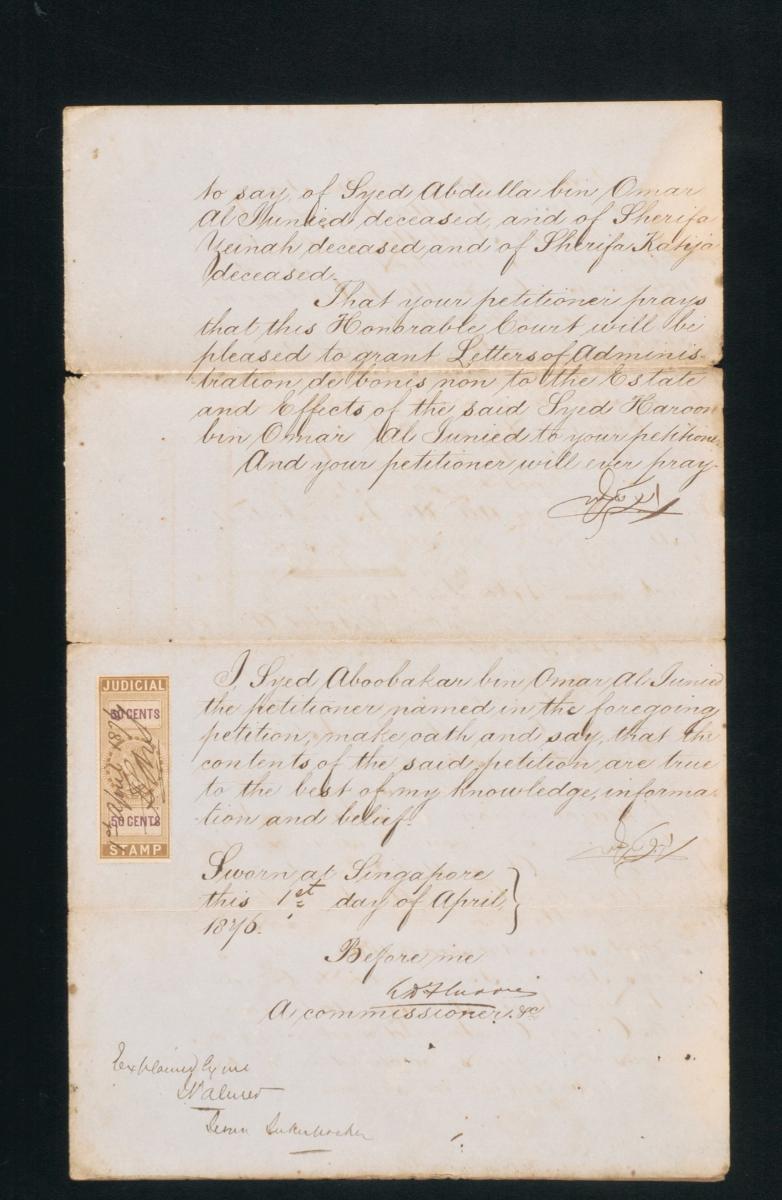 to say, of Syed Abdulla bin Omar
Al Junied deceased, and of Sherifa
Zeinah deceased and of Sherifa Katija
deceased.
That your petitioner prays
that this Honorable Court will be
pleased to grant Letters of Adminis-
tration, de bonis non to the Estate
and Effects of the said Syed Haroon
bin Omar Al Junied to your petitioner.
And your petitioner will ever pray.
I Syed Aboobakar bin Omar Al Junied
the petitioner named in the foregoing
petition, make oath and say, that the
contents of the said petition are true
to the best of my knowledge, informa-
tion and belief.
JUDICIAL
50 CENTS
1st April 1876
50 CENTS
STAMP
Sworn at Singapore
this 1st day of April,
1876.
Before me
A commissioner &c
Explained by me